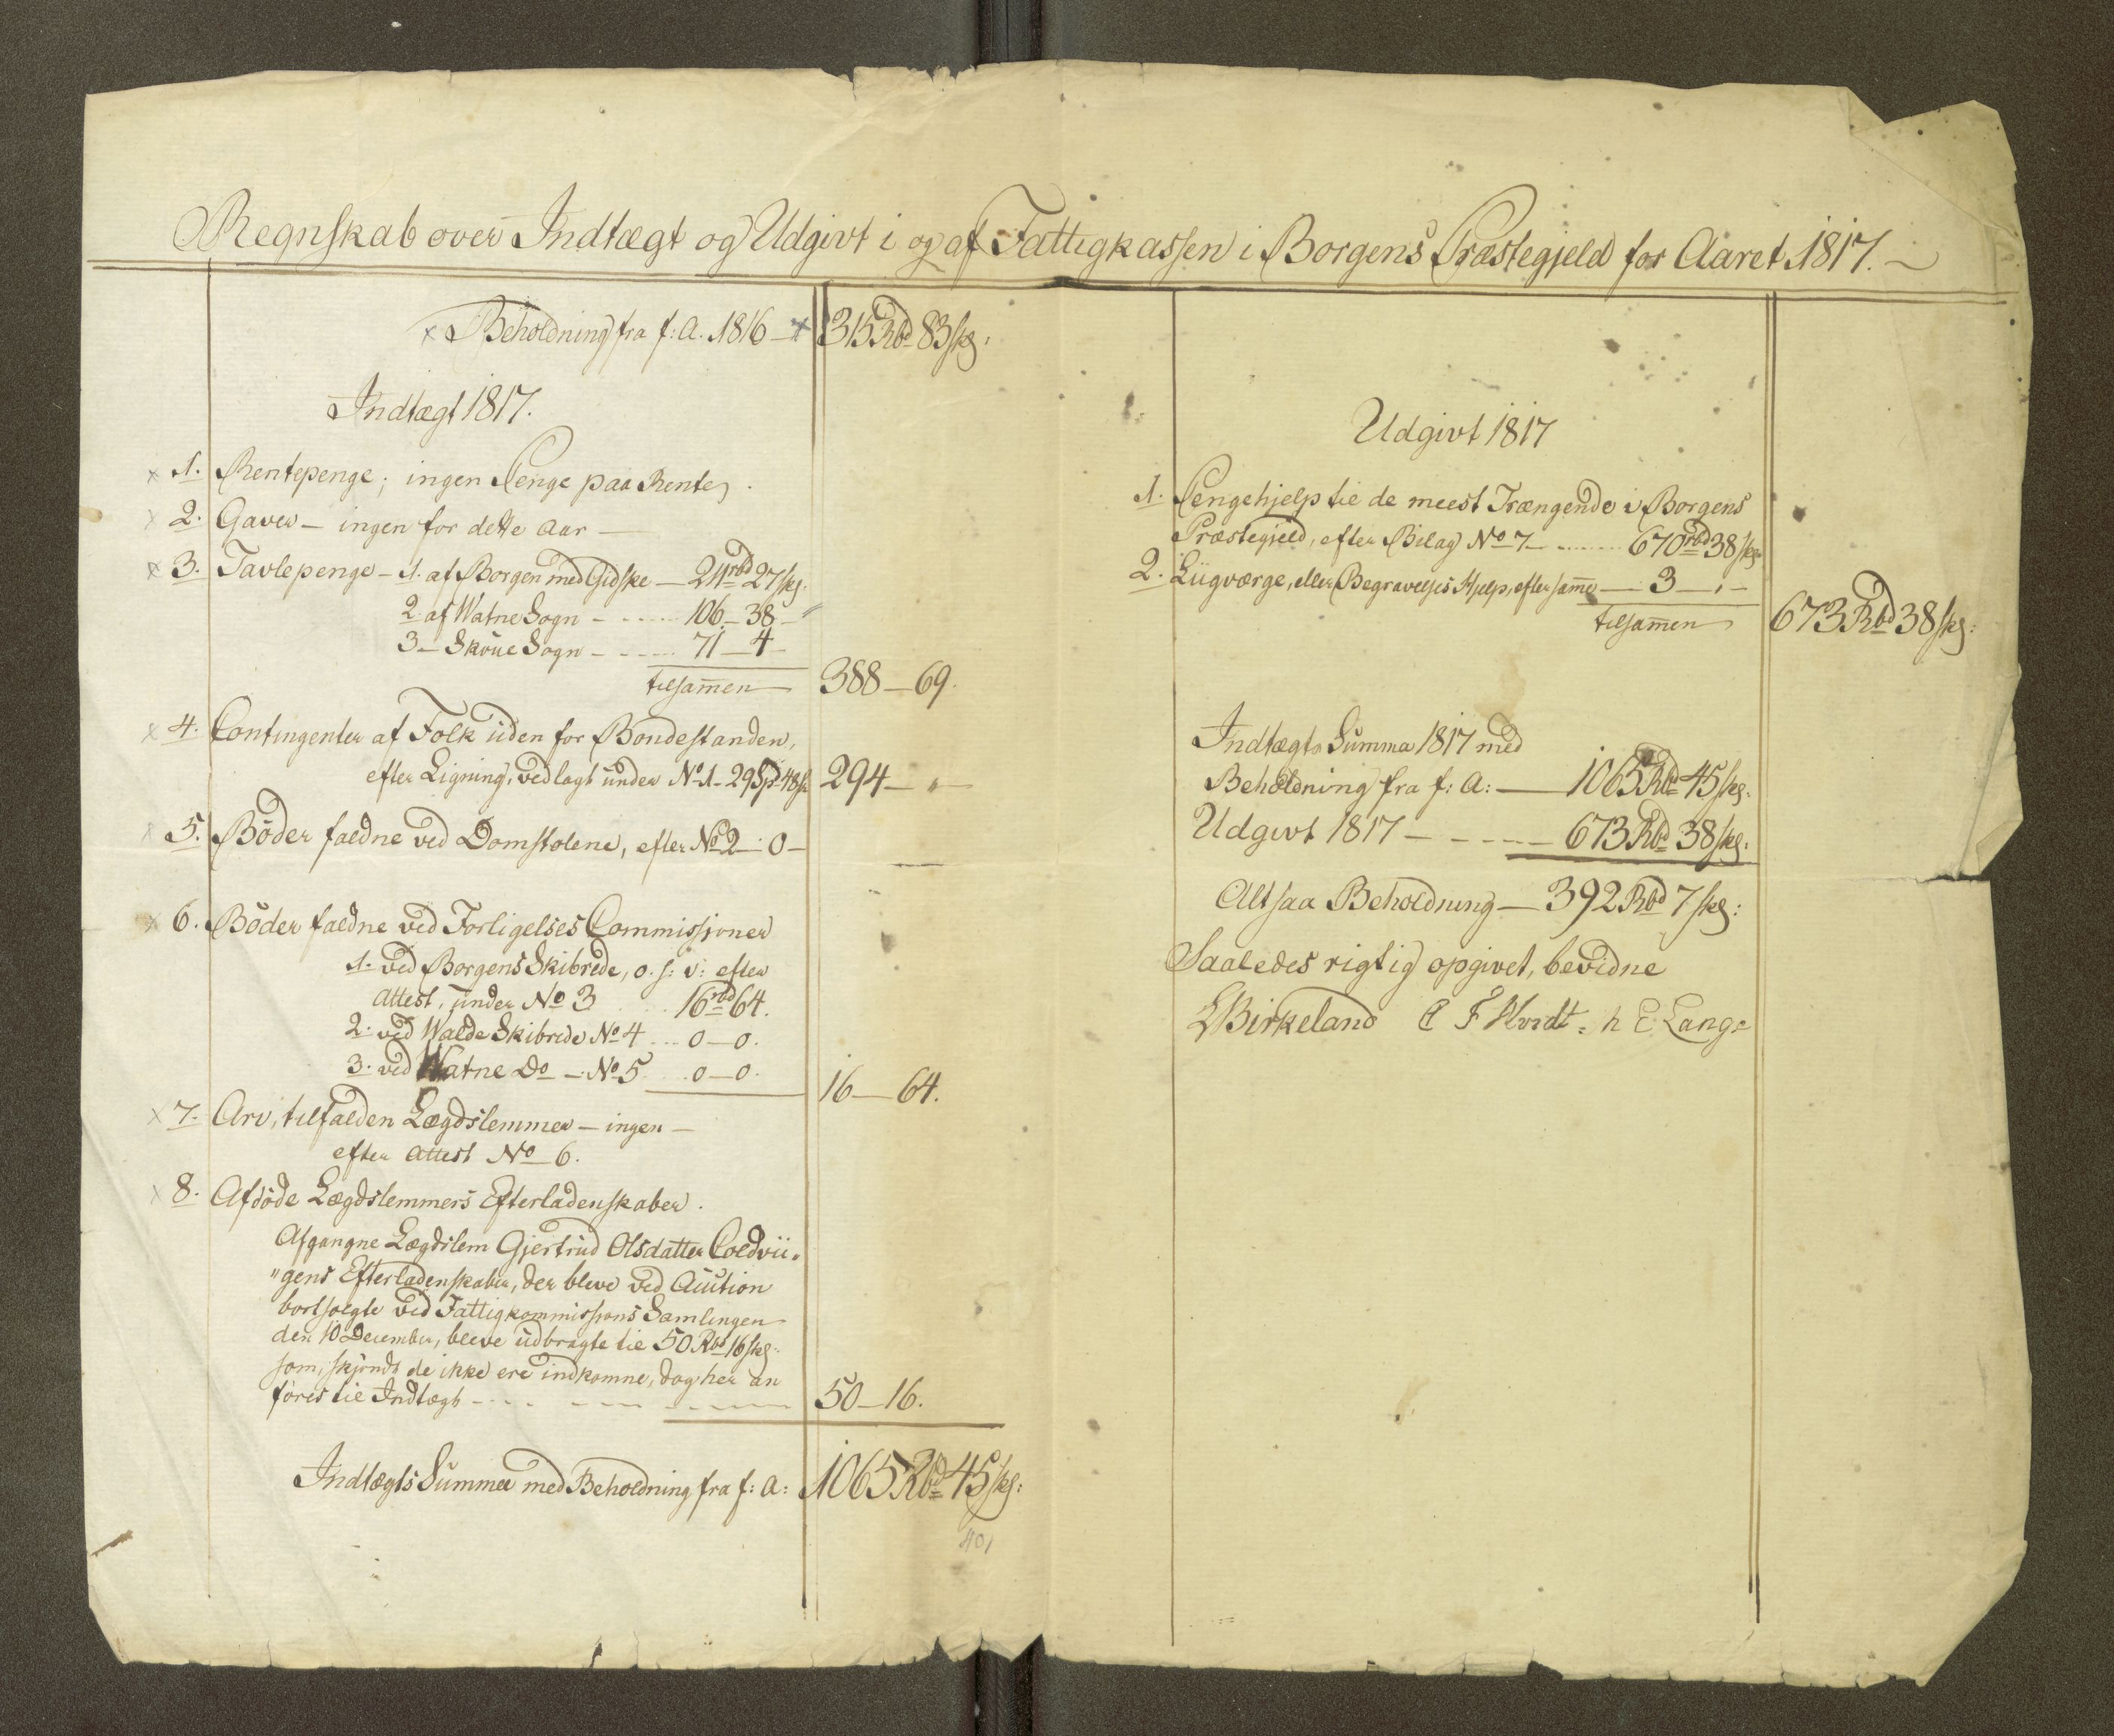 Regnskab over Indtægt og Udgivt i og af Fattigkassen i Borgens Præstegjeld for Aaret 1817.
Beholdning fra f: A. 1816 — 315 Rbd 83 skg:
Indtægt 1817.
1. Rentepenge; ingen Penge paa Rente.
2. Gaver — ingen for dette Aar —
3. Tavlepenge — 1. af Borgen med Gidske — 211 rbd 27 skg.
2 af Watne Sogn - - - - - 106 — 38 — "
3 — Skoue Sogn - - - - - 71 — 4 —
tilsam̅en — 388 — 69.
4. Contingenter af Folk uden for Bondestanden,
efter Ligning, vedlagt under No 1 - 29 Sp 48 s 294 — " —
5. Böder faldne ved Domstolene, efter No 2 — 0 —
6. Böder faldne ved Forligelses Commissioner
1. ved Borgens Skibrede, o. s: v: efter
Attest, under No 3 16 rbd 64.
2. ved Walde Skibrede No 4 ... 0 — 0.
3. ved Watne Do — No 5 ... 0 — 0. 16 — 64.
7. Arv, tilfalden Lægdslemmer — ingen —
efter Attest No 6.
8. Afdöde Lægdslemmers Efterladenskaber.
Afgangne Lægdslem Gjertrud Olsdatter Coldvii„
"gens Efterladenskaber, der bleve ved Auction
bortsolgte ved Fattigkommissions Samlingen
den 10 December, bleve udbragte til 50 Rbd 16 skg:
som, skjöndt de ikke ere indkomne, dog her an
föres til Indtægt - - - - - 50 — 16.
Indtægts Summa med Beholdning fra f: A: 1065 Rbd 45 skg:
401
Udgivt 1817
1. Pengehjelp til de meest Trængende i Borgens
Præstegjeld, efter Bilag No 7 — ...... 670 rbd 38 skg
2. Liigværge, eller Begravelses Hjelp, efter sam̅e — 3 — " —
tilsam̅en 673 Rbd 38 skg:
Indtægts Summa 1817 med
Beholdning fra f: A: — 1065 Rbd 45 skg.
Udgivt 1817 - - - - - 673 Rbd 38 skg.
Altsaa Beholdning — 392 Rbd 7 skg:
Saaledes rigtig opgivet, bevidne
Birkeland C F Hvidt. h E Lange